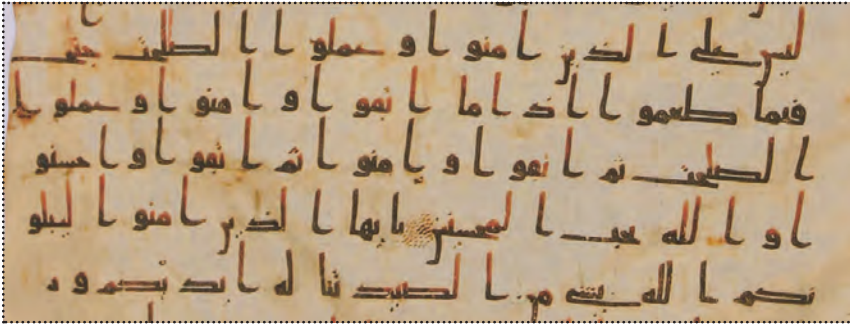 ليس على الذين امنوا وعملوا الصلحت جنح
فيما طعموا اذا ما اتقوا وامنوا وعملوا
الصلحت ثم اتقوا وامنوا ثم اتقوا واحسنو
ا والله يحب المحسنين يايها الذين امنوا ليبلو
نكم الله بشي من الصيد تناله ايديكم و ر